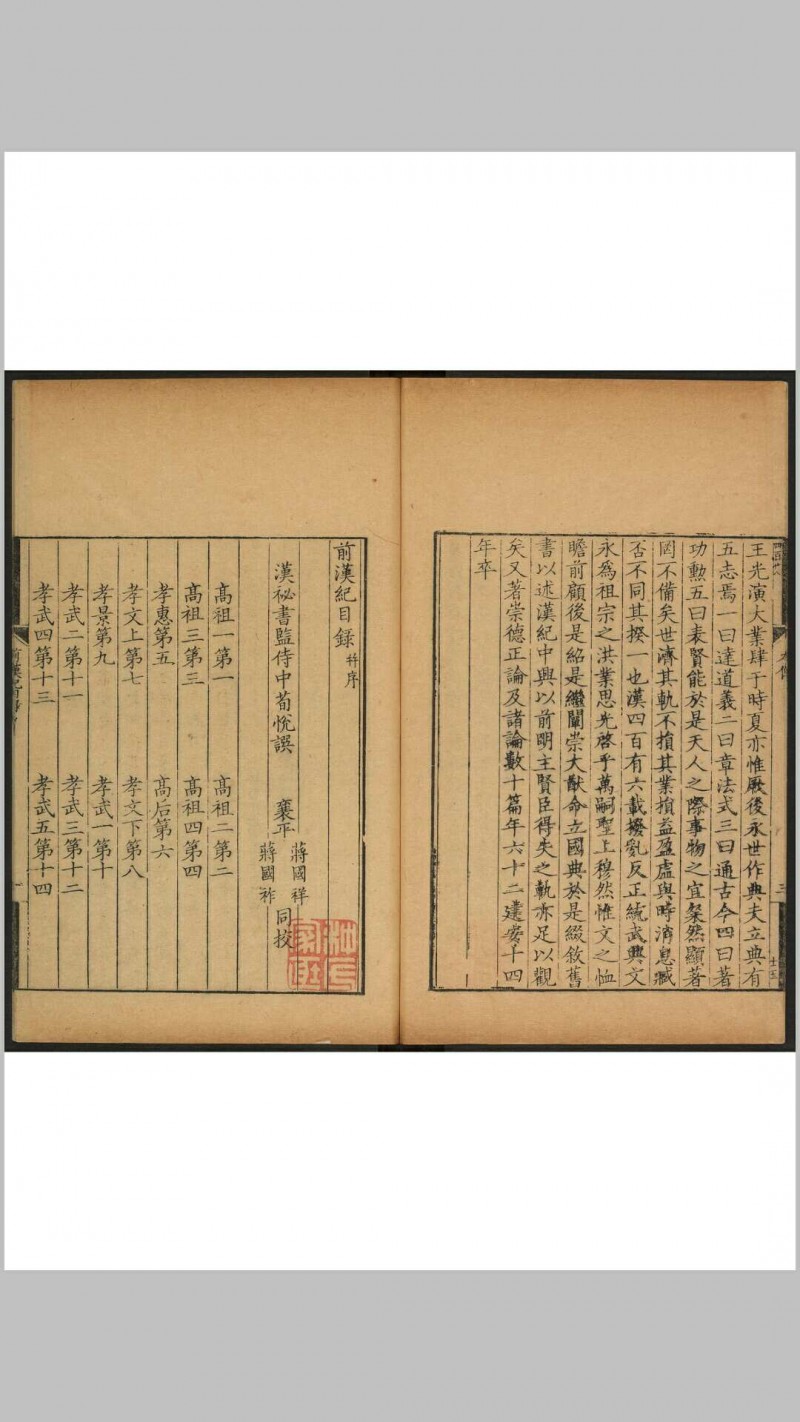 王光演大業肆于時夏亦惟厥後永世作典夫立典有
五志焉一曰達道義二曰章法式三曰通古今四曰著
功勲五曰表賢能於是天人之際事物之宜粲然顯著
罔不備矣世濟其軌不損其業損益盈虛與時消息臧
否不同其揆一也漢四百有六載撥亂反正統武興文
永爲祖宗之洪業思光啓乎萬嗣聖上穆然惟文之恤
瞻前顧後是紹是繼闡崇大猷命立國典於是綴敘舊
書以述漢紀中興以前明主賢臣得失之軌亦足以觀
矣又著崇德正論及諸論數十篇年六十二建安十四
年卒
前漢紀目録 幷序
漢祕書監侍中荀悅譔 襄平 蔣國祥 蔣國祚 同校
髙祖一第一 髙祖二第二
髙祖三第三 髙祖四第四
孝惠第五 髙后第六
孝文上第七 孝文下第八
孝景第九 孝武一第十
孝武二第十一 孝武三第十二
孝武四第十三 孝武五第十四